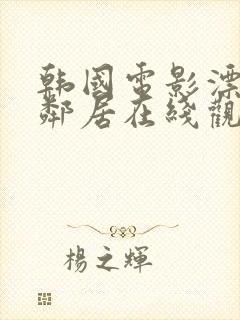 韩國電影漂
鄰居在綫觀
楊之輝